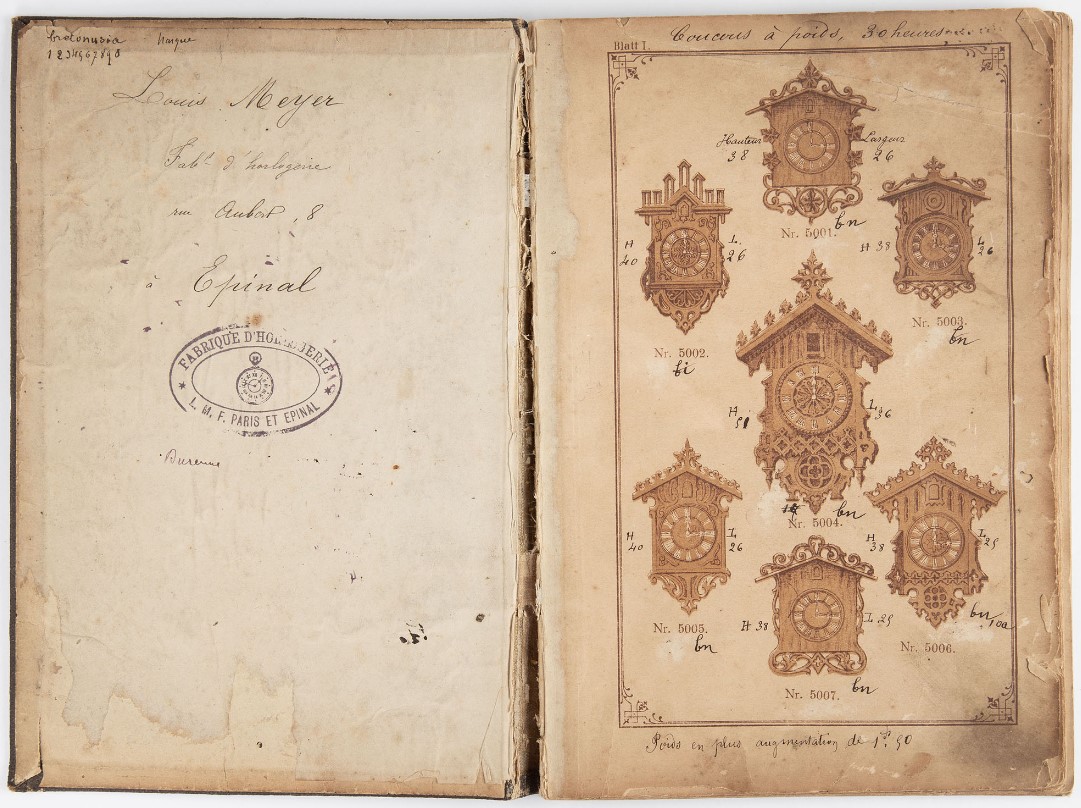 bretonusia Marque
1 2 3 4 5 6 7 8 9 0
Louis Meyer
Fabt d'horlogerie
rue Aubert, 8
à Epinal
FABRIQUE D'HORLOGERIE
L. M. F. PARIS ET EPINAL
Blatt I.
Coucous à poids, 30 heures
Hauteur 38
Largeur 26
Nr. 5001. bn
H 40
L. 26
Nr. 5002.
fi
H 38
L 26
Nr. 5003.
bn
H 51
L 36
Nr. 5004. bn
H 40
L 26
Nr. 5005.
bn
H 38
L 25
bn
Nr. 5006.
H 38
L 25
Nr. 5007. bn
Poids en plus augmentation de 1f 50